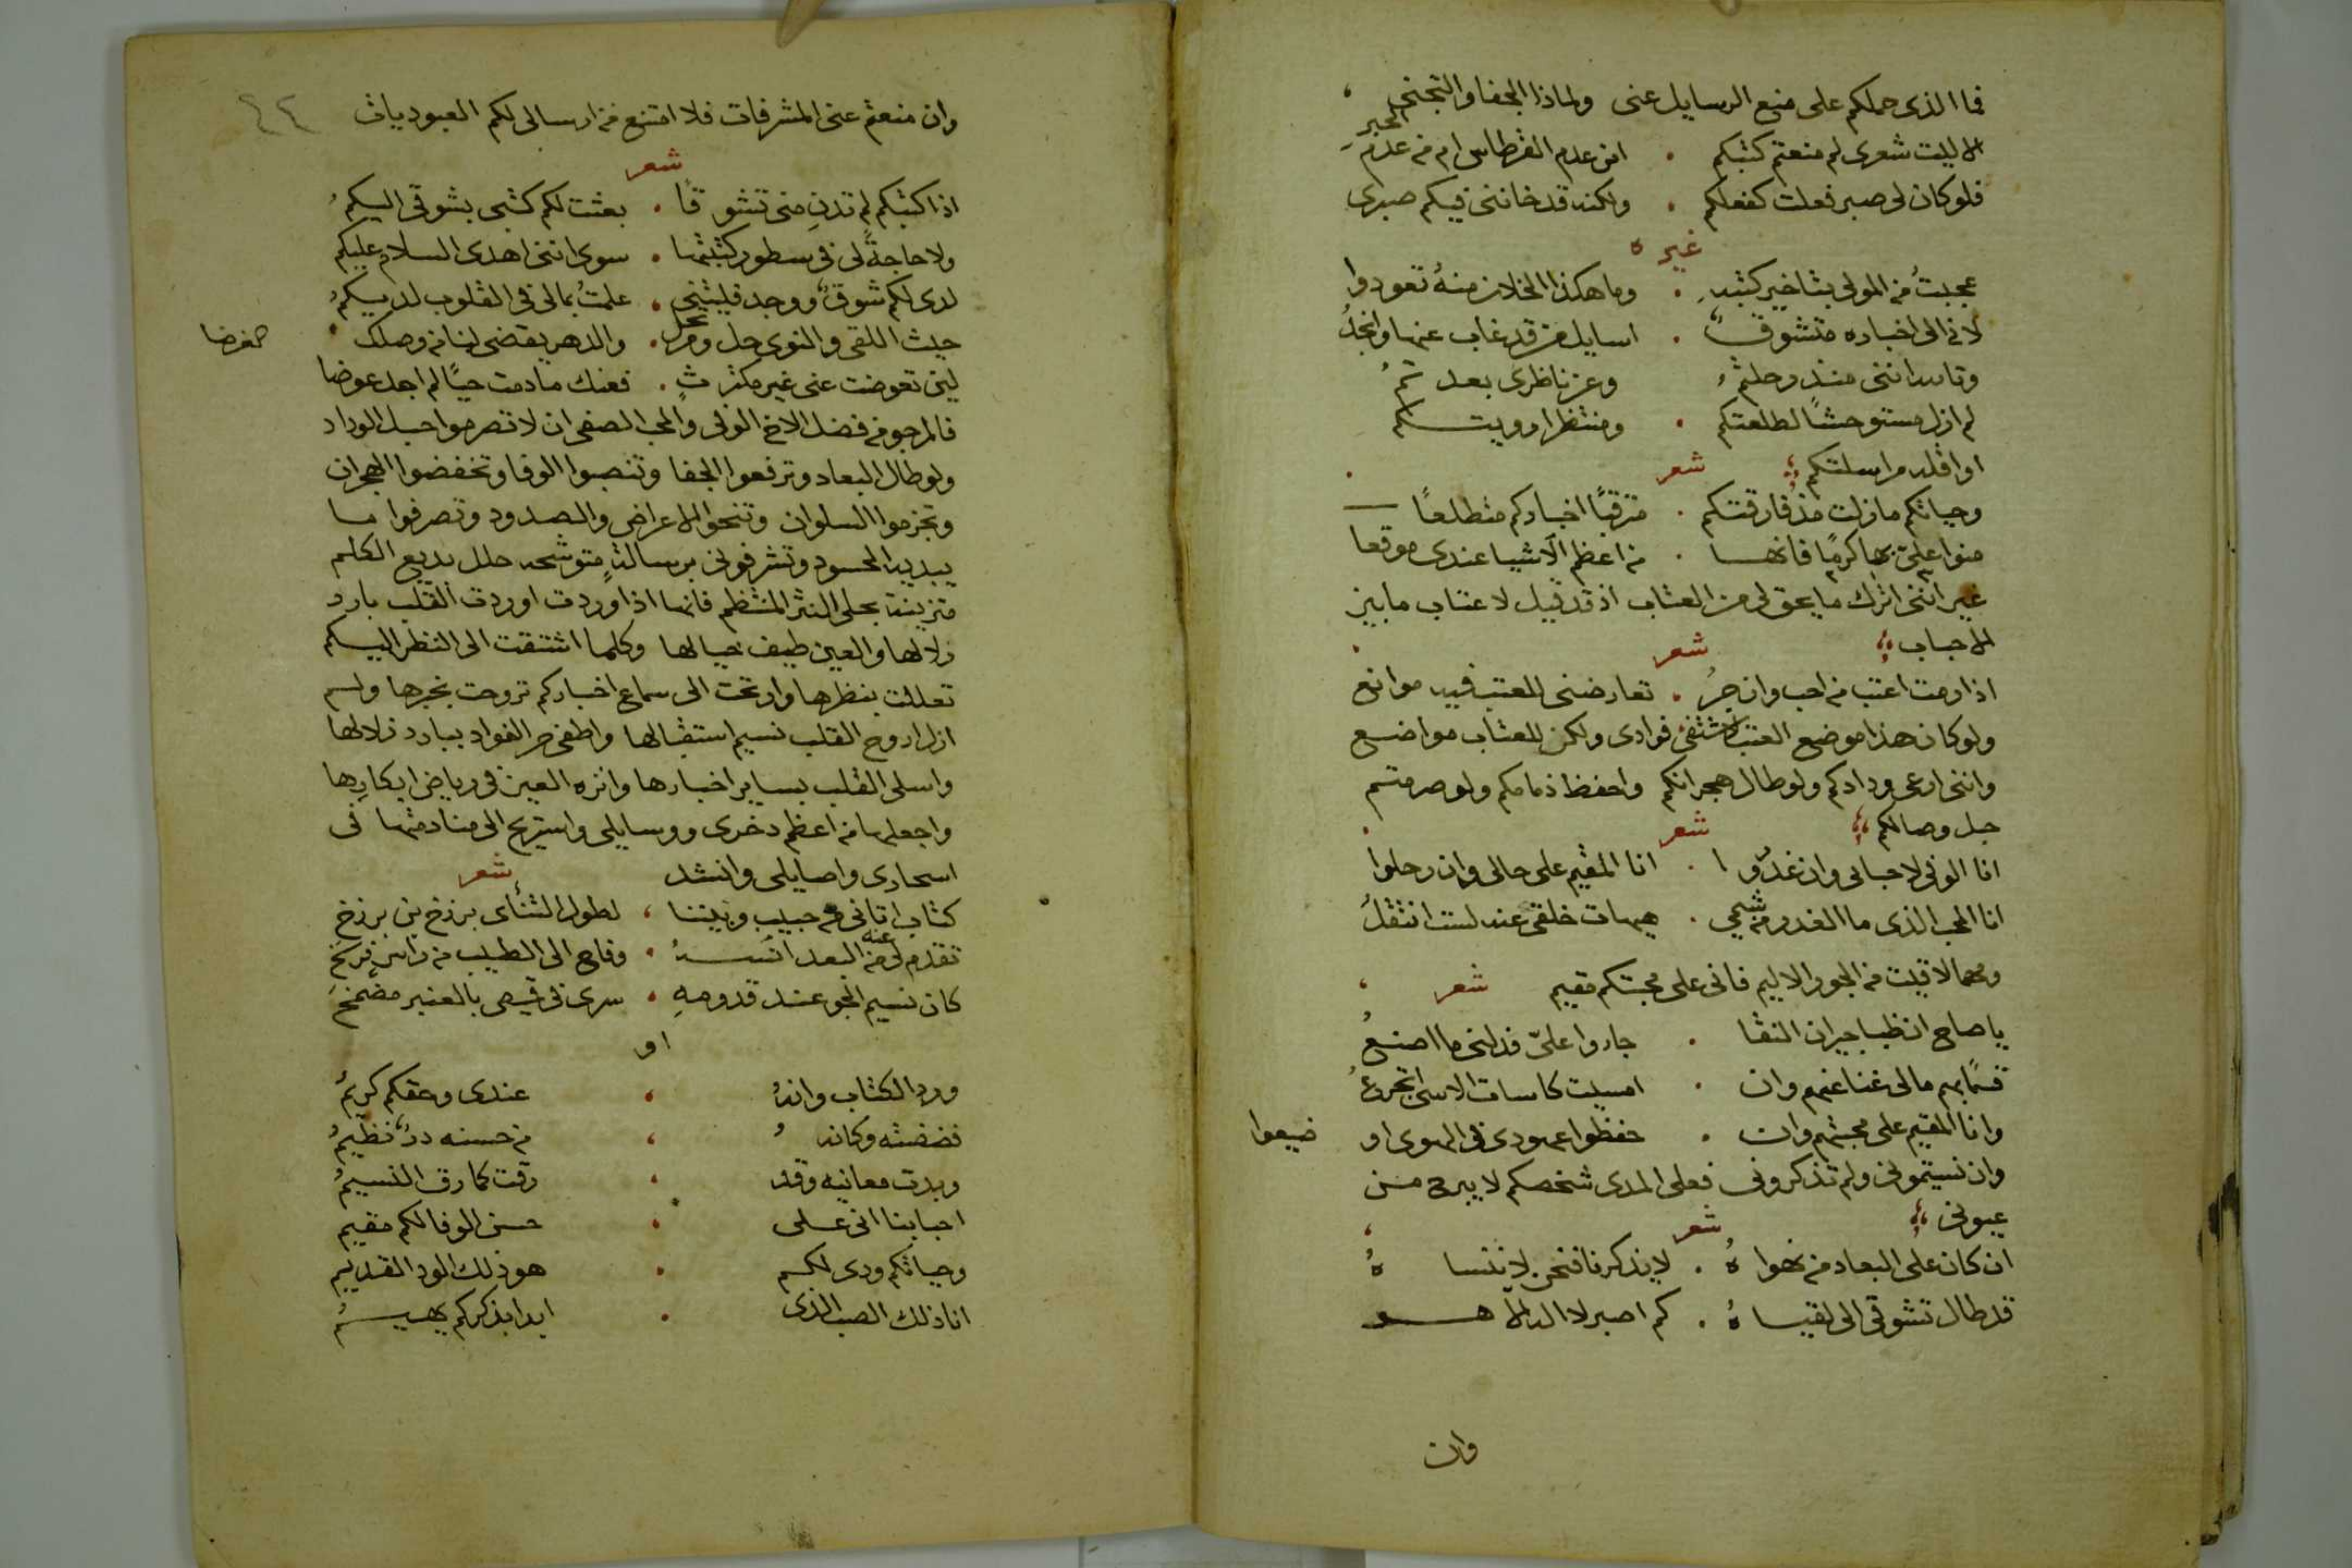 فما الذى حملكم على منع الرسايل عنى ولماذا الجفا والتجنى
الا ليت شعرى لم منعتم كتبكم . امن عدم القرطاس ام من عدم الحبر
فلو كان لى صبر فعلت كفعلكم . ولكنه قد خاننى فيكم صبرى
غيره
عجبتُ من المولى بتاخير كتبه . وما هكذا الخلان منهُ تعودوا
لانى الى اخباره متشوقٌ . اسايل من قد غاب عنها وانجدُ
وتالله اننى منذ رحلتمُ وعن ناظرى بعدتمُ
لم ازل مستوحشًا لطلعتكم . ومنتظرا رويتكم
اوافله مراسلتكم شعر
وحياتكم مازلت مذ فارقتكم . مترقبًا اخباركم متطلعًا
منوا علىّ بها كرمًا فانها . من اعظم الاشيا عندى موقعا
غير اننى اترك ما يحق لى من العتاب اذ قد قيل لا عتاب ما بين
الاحباب شعر
اذا رمت اعتب من احب وان جرُ . تعارضنى للعتب فيه موانع
ولو كان هذا موضع العتب لاشتفى فوادى ولكن للعتاب مواضع
واننى ارعى ودادكم ولو طال هجرانكم واحفظ ذمامكم ولو صرمتم
حبل وصالكم شعر
انا الوفى لاحبابى وان غدروا . انا المقيم على حالى وان رحلوا
انا المحب الذى ما الغدر من شيمى . هيهات خلقى عنه لست انتقلُ
ومهما لاقيت من الجور الاليم فانى على محبتكم مقيم شعر
يا صاح ان ظبا جيران النقا . جاروا علىّ فدلنى ما اصنعُ
قسمًا بهم مالى غنا عنهم وان . امسيت كاسات الاسى اتجرعُ
وانا المقيم على محبتهم وان . حفظوا عهودى فى الهوى او ضيعوا
وان نسيتمونى ولم تذكرونى فعلى المدى شخصكم لا يبرح من
عيونى شعر
ان كان على البعاد من نهواهُ . لا يذكرنا فنحن لا ننساهُ
قد طال تشوقى الى لقياهُ . كم اصبر لا اله الا هو
وان
٤٤
وان منعتم عنى المشرفات فلا امتنع من ارسالى لكم العبوديات
شعر
اذا كتبكم لم تدنِ منى تشوقًا . بعثت لكم كتبى بشوقى اليكمُ
ولا حاجةً لى فى سطور كتبتها . سوى اننى اهدى السلام عليكم
لدى لكم شوقٌ ووجد فليتنى . علمتُ بمالى فى القلوب لديكمُ
حيث اللقى والنوى حل ومرتحل . والدهر يقضى لنا من وصلك
لين تعوضت عنى غير مكترثٍ . فعنك مادمت حيًا لم اجد عوضا
فالمرجو من فضل الاخ الوفى والمحب الصفى ان لا تصرموا حبل الوداد
ولو طال البعاد وترفعوا الجفا وتنصبوا الوفا وتخفضوا الهجران
وتجزموا السلوان وتنحوا الاعراض والصدود وتصرفوا ما
يبديه الحسود وتشرفونى برسالةٍ متوشحه حلل بديع الكلم
متزينة بحلى النثر المنتظم فانها اذا وردت اوردت القلب بارد
زلالها والعين طيف خيالها وكلما اشتقت الى النظر اليكم
تعللت بنظرها وارتحت الى سماع اخباركم تروحت بخبرها ولم
ازل اروح القلب نسيم استقبالها واطفى حر الفواد ببارد زلالها
واسلى القلب بساير اخبارها وانزه العين فى رياض ابكارها
واجعلها من اعظم دخرى ووسايلى واستريح الى منادمتها فى
اسحارى واصايلى وانشد شعر
كتاب اتانى من حبيب وبيننا ، لطول التنأى برزخ بين برزخ
تقدم لى منه البعد انسهُ . وفاح الى الطيب من راس فرسخ
كان نسيم الجو عند قدومهِ . سرى فى قميص بالعنبر مضمخ
او
ورد الكتاب وانهُ ، عندى وحقكم كريمُ
ففضضته وكانهُ ، من حسنه درٌ نظيمُ
وبدت معانيه وقد ، رقت كما رق النسيمُ
احبابنا انى على ، حسن الوفا لكم مقيم
وحياتكم ودى لكم . هو ذلك الود القديم
انا ذلك الصب الذى . ابدا بذكركم يهيمُ